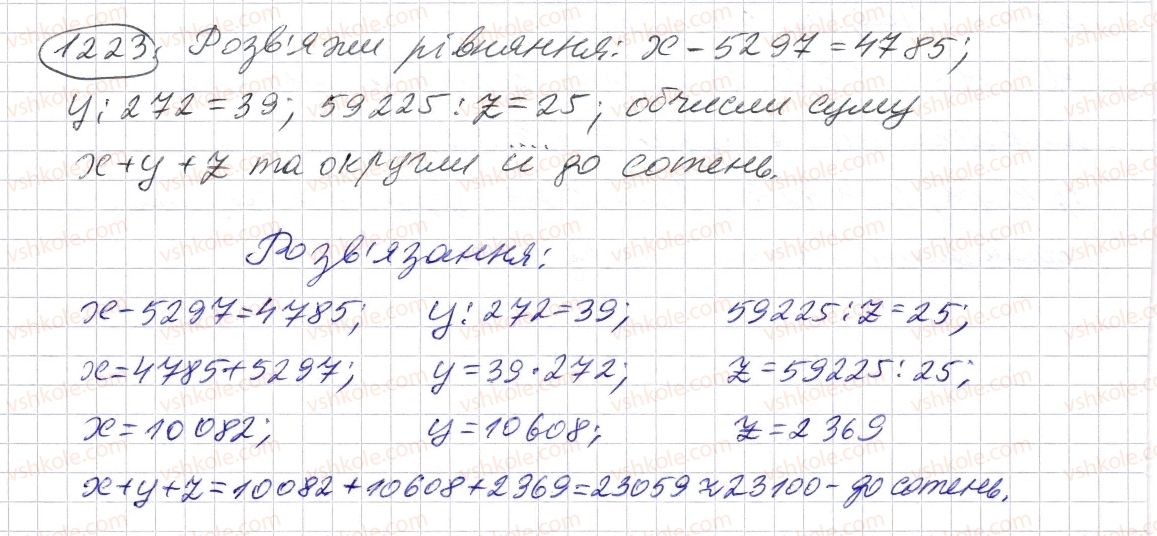 1223; Розв'яжи рівняння: x - 5297 = 4785;
y : 272 = 39; 59225 : z = 25; обчисли суму
x + y + z та округли її до сотень.
Розв'язання:
x - 5297 = 4785; y : 272 = 39; 59225 : z = 25;
x = 4785 + 5297; y = 39 · 272; z = 59225 : 25;
x = 10 082; y = 10 608; z = 2 369
x + y + z = 10082 + 10608 + 2369 = 23059 ≈ 23100 - до сотень.